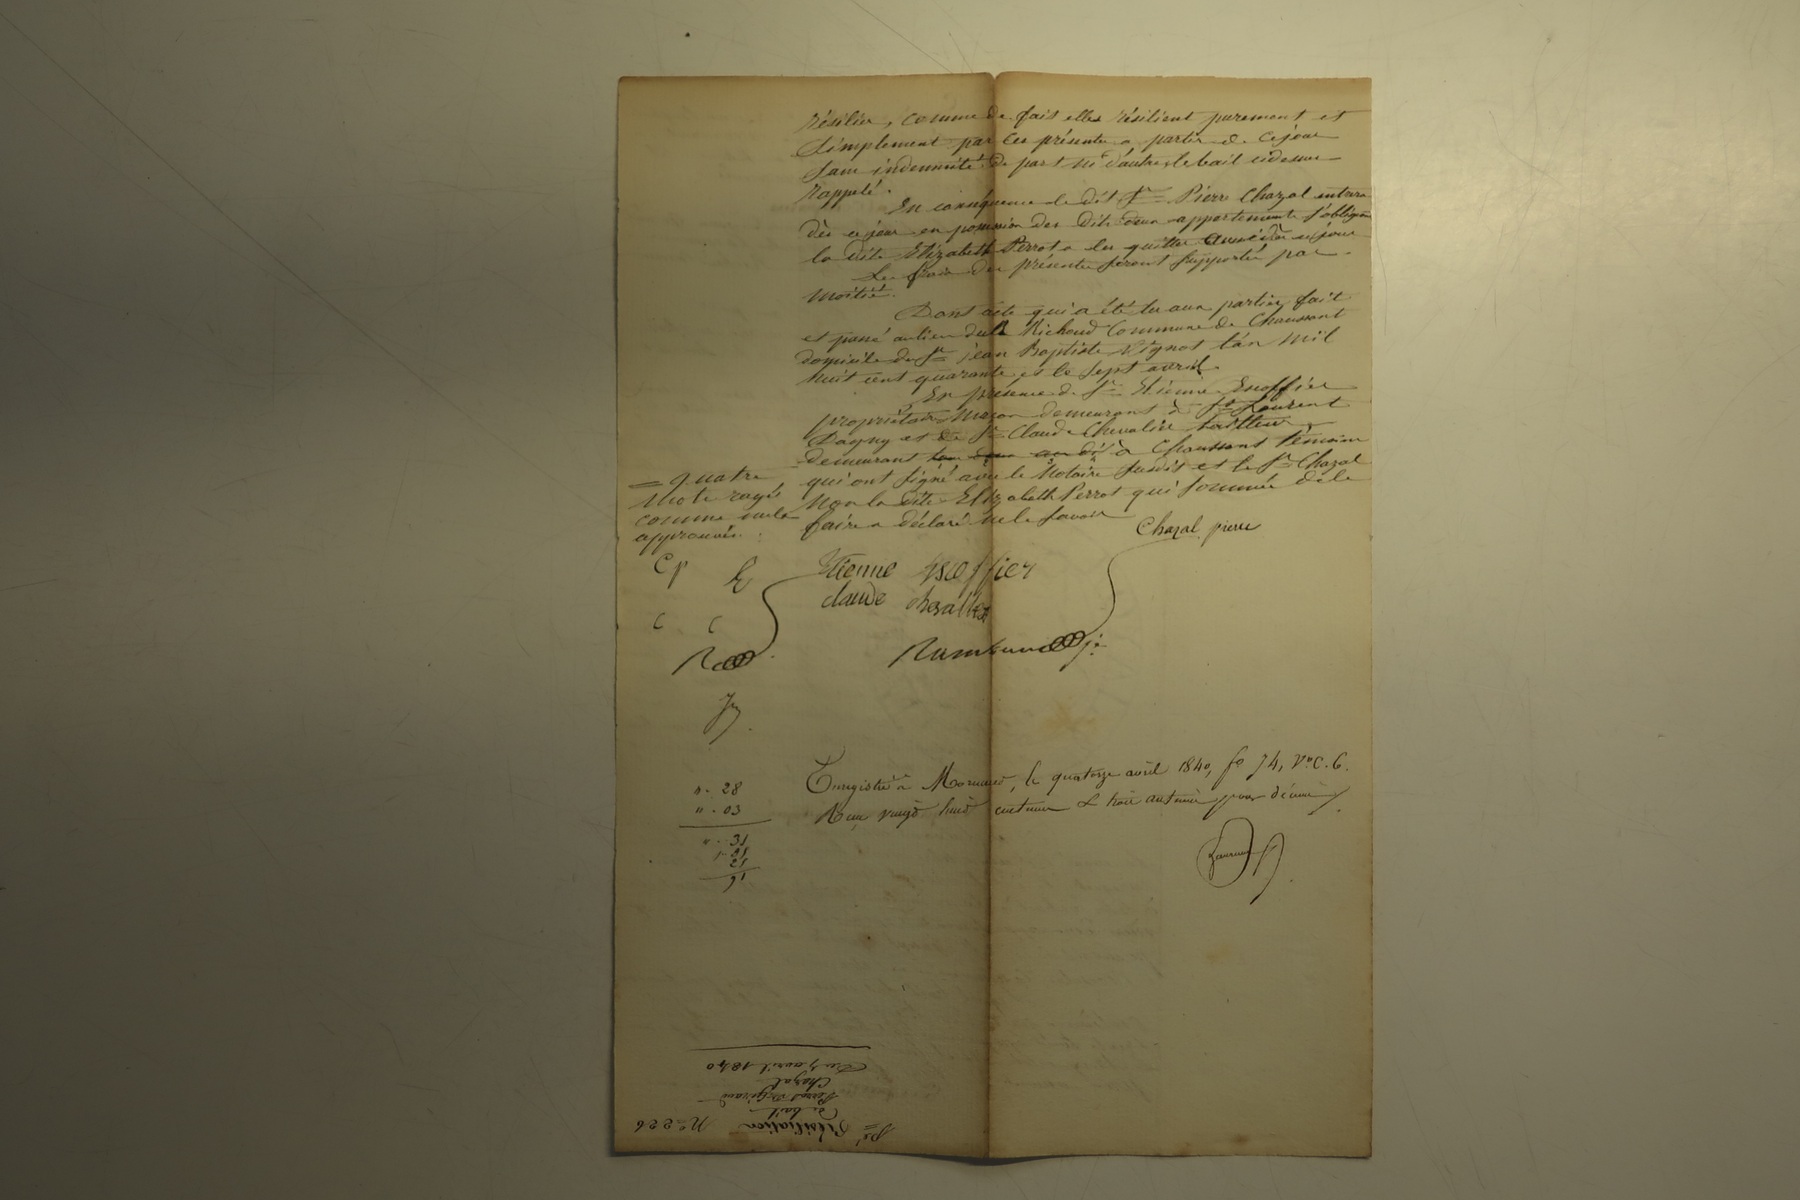 résilier, comme de fait elles résilient purement et
simplement par ces présentes a partir de ce jour
sans indemnité de part ni d'autre, le bail cidessus
rappelé.
En conséquence le dit Sr Pierre Chazal entrera
dès ce jour en possession des dits deux appartements s'obligeant
la dite Elizabeth Perrot a les quitter ce jour
Les frais des présentes seront supportés par
moitié.
Dont acte qui a été lu aux parties, fait
et passé au lieu du Richoud Commune de Chaussant
domicile du Sr jean Baptiste Vignot l'an mil
huit cent quarante et le sept avril
En présence de Sr Etienne Escoffier
propriétaire Maçon demeurant à St Laurent
Dagny et de Sr Claude Chevalier tailleur
demeurant à Chaussant témoins
qui ont signé avec le Notaire susdit et le Sr Chazal
Non la dite Elizabeth Perrot qui sommée de le
faire a déclaré ne le savoir
= quatre
mots rayés
comme nuls
approuvés.
Chazal pierre
Cp E
Etienne Escoffier
claude chevallier
C C
R
Enregistré à Mornant, le quatorze avril 1840, fo 74, Vo C. 6.
Reçu vingt huit centimes & trois centimes pour décime
". 28
". 03
". 31
Rés
Résiliation
de bail
No 226
Perrot
Chazal
Du 7 avril 1840